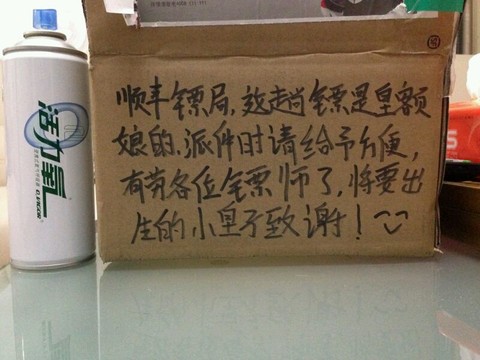 顺丰镖局,这趟镖是皇额
娘的.派件时请给予方便,
有劳各位镖师了,将要出
生的小皇子致谢!
活力氧